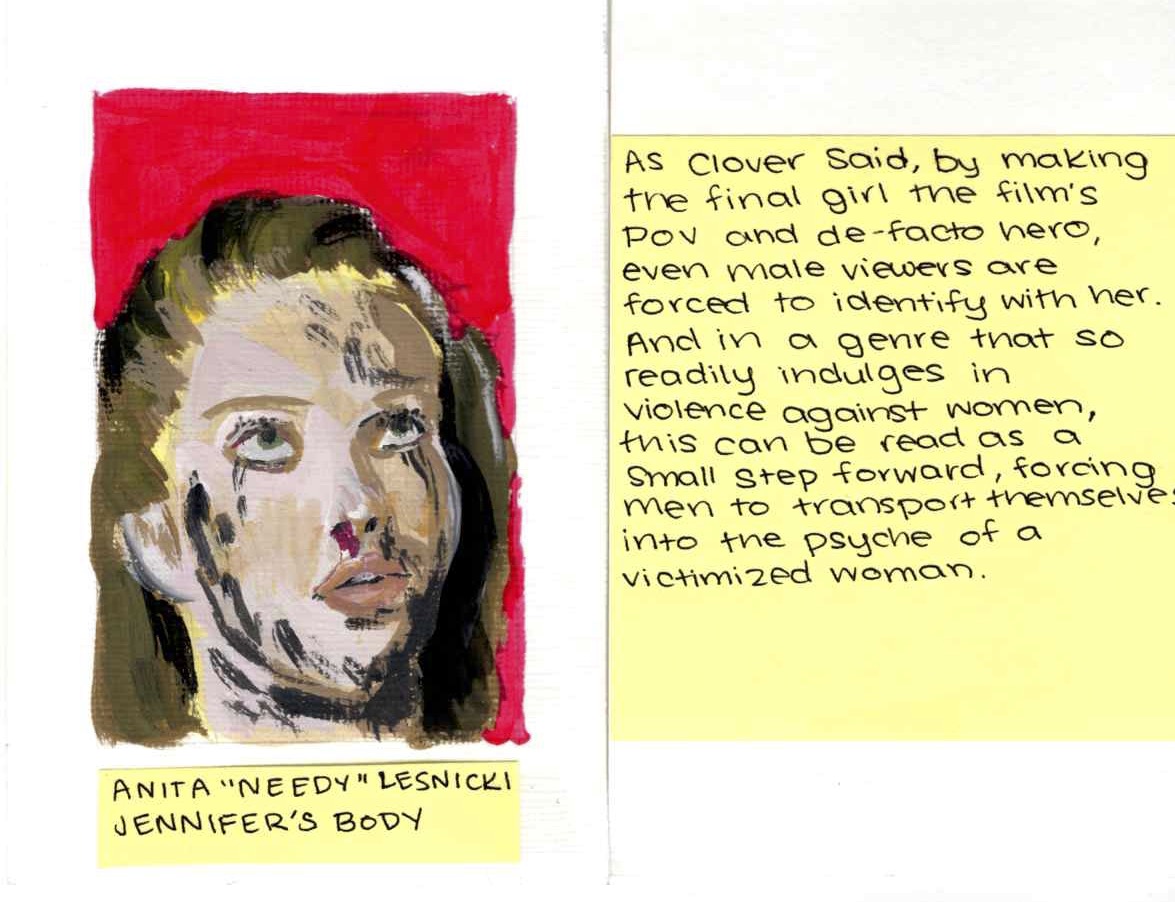 ANITA "NEEDY" LESNICKI
JENNIFER'S BODY
As Clover said, by making
the final girl the film's
POV and de-facto hero,
even male viewers are
forced to identify with her.
And in a genre that so
readily indulges in
violence against women,
this can be read as a
small step forward, forcing
men to transport themselves
into the psyche of a
victimized woman.